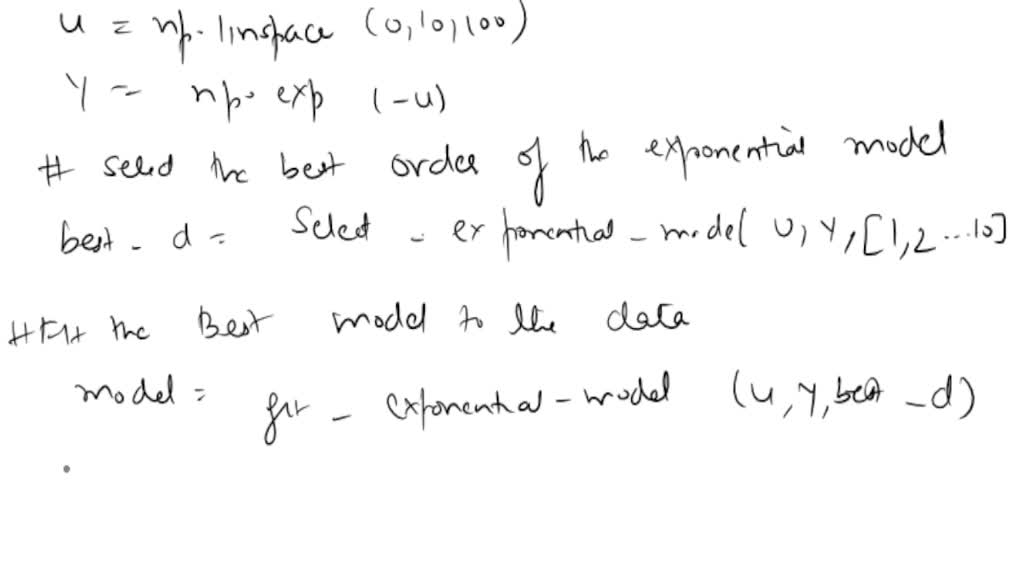 u = np.linspace (0,10,100)
Y = np.exp (-u)
# Select the best order of the exponential model
best_d = Select_exponential_model U, Y, [1,2...10]
# Fit the Best model to the data
model = fit_exponential_model (u, y, best_d)